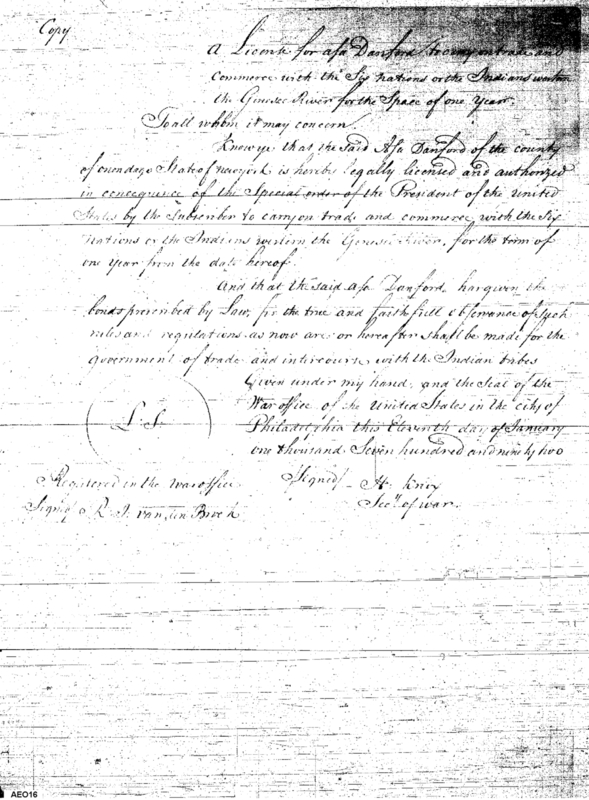 Copy
A License for Asa Danford to carry on trade and
Commerce with the Six Nations or the Indians within
the Genesee River for the Space of one Year.
To all whom it may concern
Know ye that the said Asa Danford of the county
of onondago State of new york is hereby legally licensed and authorized
in concequence of the Special order of the President of the United
States by the Subscriber to carry on trade and commerce with the Six
Nations or the Indians western the Genesee River, for the term of
one year from the date hereof.
And that the said Asa Danford, has given the
bonds prescribed by Law, for the true and faithfull observance of such
rules and regulations as now are or hereafter shall be made for the
government of trade and intercourse with the Indian tribes
Given under my hand, and the Seal of the
War office of the United States in the city of
L.S.
Philadelphia this Eleventh day of January
one thousand Seven hundred and ninety two
Signed H. Knox
Registered in the war office
Secy. of war.
Signed R. J. Vanden Broek
AEO16